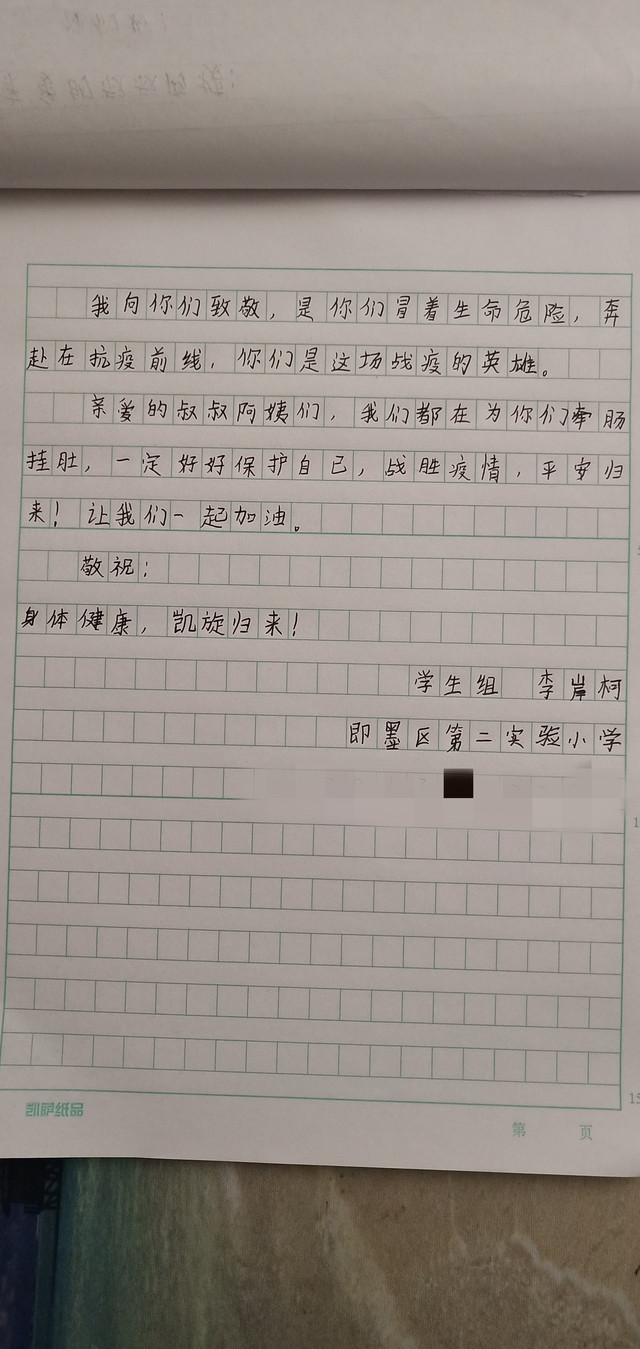 我向你们致敬，是你们冒着生命危险，奔
赴在抗疫前线，你们是这场战疫的英雄。
亲爱的叔叔阿姨们，我们都在为你们牵肠
挂肚，一定好好保护自己，战胜疫情，平安归
来！让我们一起加油。
敬祝：
身体健康，凯旋归来！
学生组 李岸柯
即墨区第二实验小学
凯萨纸品
第 页
15